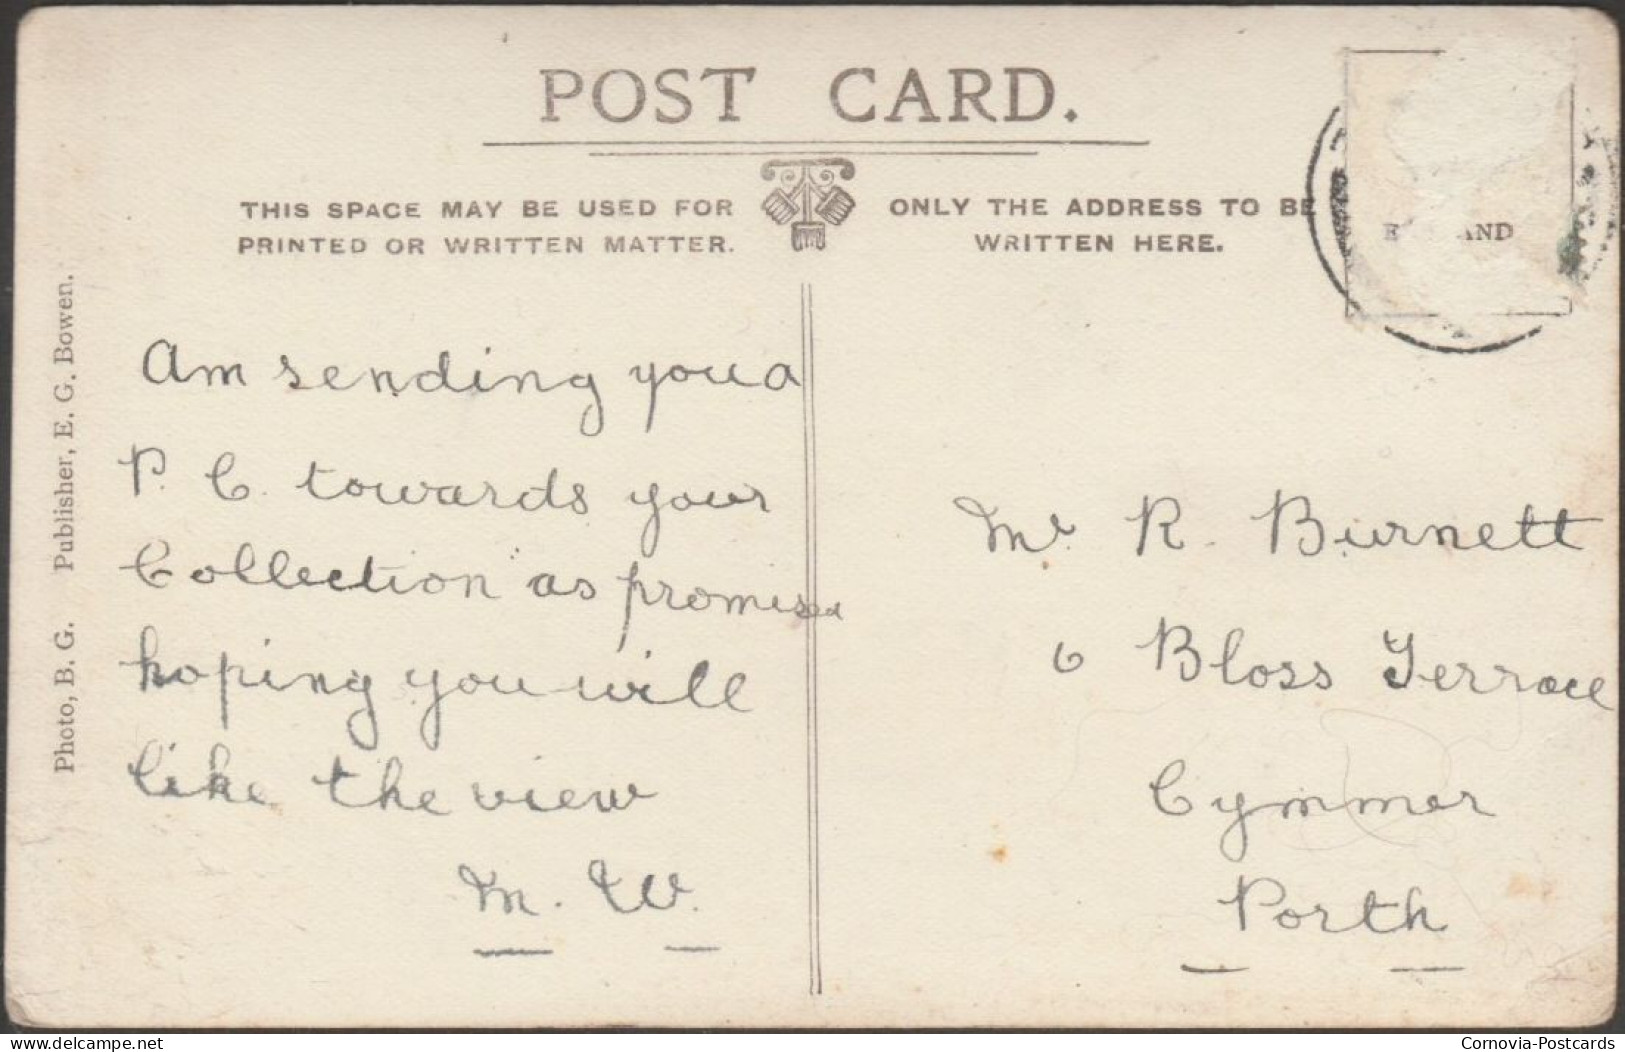 POST CARD.
THIS SPACE MAY BE USED FOR
PRINTED OR WRITTEN MATTER.
ONLY THE ADDRESS TO BE
WRITTEN HERE.
Photo, B. G. Publisher, E. G. Bowen.
Am sending you a
P. C. towards your
Collection as promised
hoping you will
like the view
M. W.
Mr. R. Burnett
6 Bloss Terrace
Cymmer
Porth
delcampe.net
Cornovia-Postcards